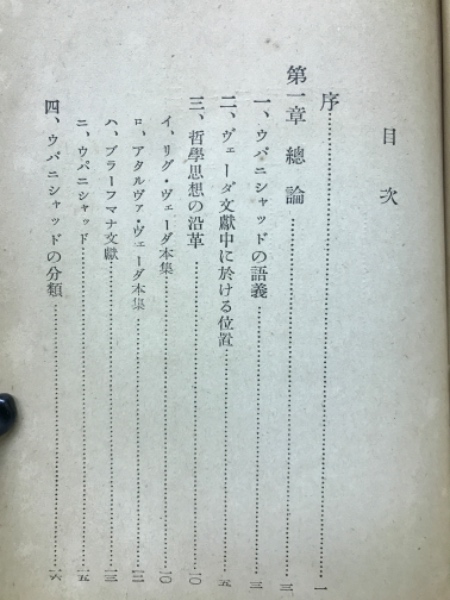 目次
序……一
第一章 總論……三
一、ウパニシャッドの語義……三
二、ヴェーダ文獻中に於ける位置……五
三、哲學思想の沿革……一〇
イ、リグ・ヴェーダ本集……一〇
ロ、アタルヴァ・ヴェーダ本集……一二
ハ、ブラーフマナ文獻……一三
ニ、ウパニシャッド……一五
四、ウパニシャッドの分類……一六